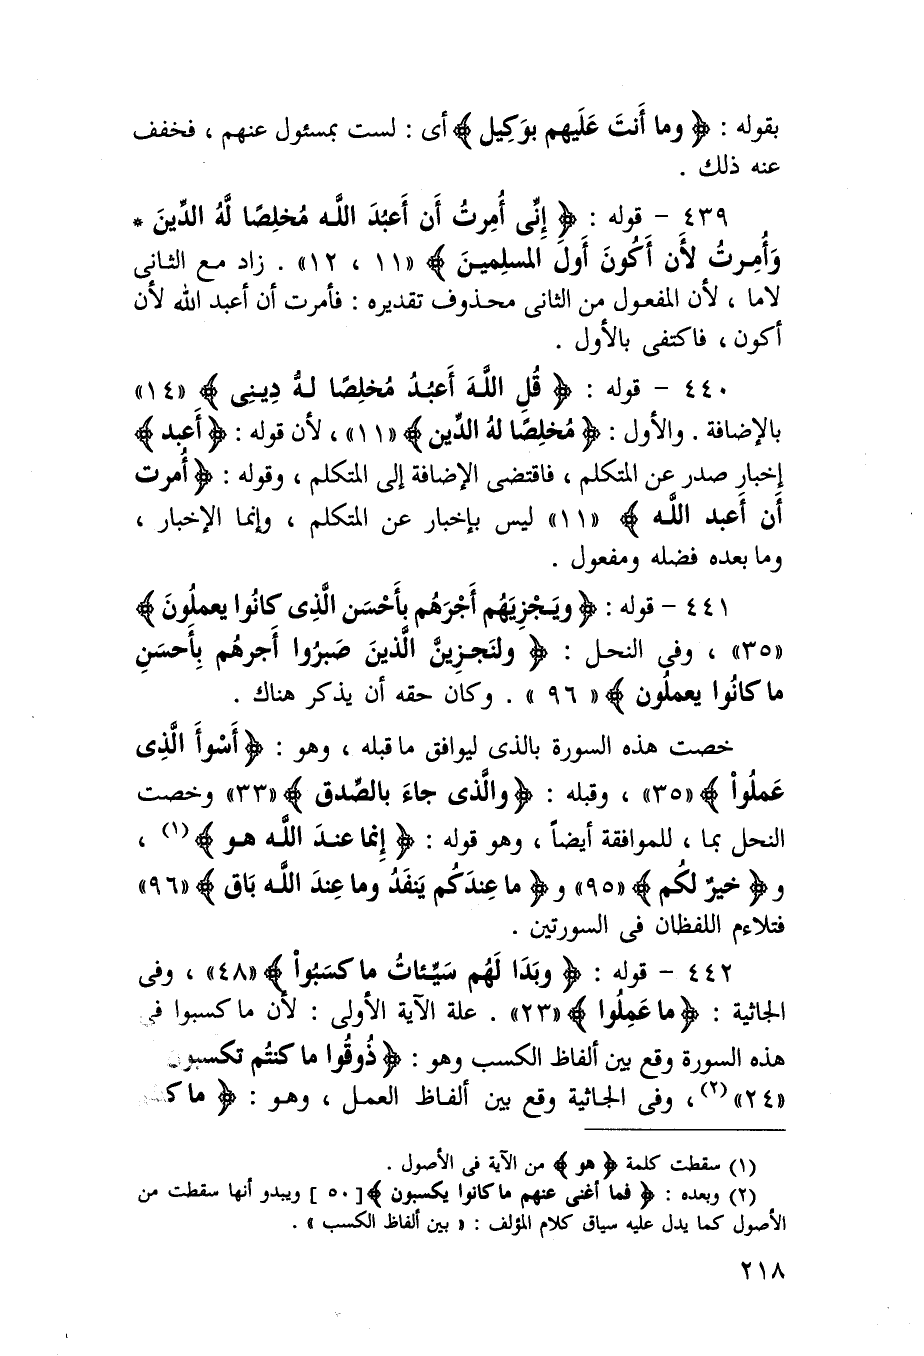 بقوله : ﴿ وما أَنتَ عَلَيهم بوَكِيل ﴾ أى : لست بمسئول عنهم ، فخفف
عنه ذلك .
٤٣٩ – قوله : ﴿ إِنِّى أُمِرتُ أَن أَعبُدَ اللَّه مُخلِصًا لَّهُ الدِّينَ *
وَأُمِرتُ لأَن أَكُونَ أَولَ المسلمينَ ﴾ «١١ ، ١٢» . زاد مع الثانى
لاما ، لأن المفعول من الثانى محذوف تقديره : فأمرت أن أعبد الله لأن
أكون ، فاكتفى بالأول .
٤٤٠ – قوله : ﴿ قُلِ اللَّهَ أَعبُدُ مُخلِصًا لهُ دِينِى ﴾ «١٤»
بالإضافة . والأول : ﴿ مُخلِصًا لهُ الدِّين ﴾ «١١» ، لأن قوله : ﴿ أَعبد ﴾
إخبار صدر عن المتكلم ، فاقتضى الإضافة إلى المتكلم ، وقوله : ﴿ أُمرت
أَن أَعبد اللَّه ﴾ «١١» ليس بإخبار عن المتكلم ، وإنما الإخبار ،
وما بعده فضله ومفعول .
٤٤١ – قوله : ﴿ ويَجْزِيَهُم أَجْرَهُم بأَحْسَن الَّذِى كانُوا يعملُونَ ﴾
«٣٥» ، وفى النحل : ﴿ ولنَجزِينَّ الَّذينَ صَبرُوا أَجرهُم بِأَحسَنِ
ما كانُوا يعملُون ﴾ « ٩٦ » . وكان حقه أن يذكر هناك .
خصت هذه السورة بالذى ليوافق ما قبله ، وهو : ﴿ أَسْوأَ الَّذِى
عَملُواْ ﴾ «٣٥» ، وقبله : ﴿ والَّذى جاءَ بالصِّدق ﴾ «٣٣» وخصت
النحل بما ، للموافقة أيضاً ، وهو قوله : ﴿ إِنما عندَ اللَّه هو ﴾ (١) ،
و ﴿ خيرٌ لكُم ﴾ «٩٥» و ﴿ ما عِندَكُم يَنفَدُ وما عِندَ اللَّه بَاق ﴾ «٩٦»
فتلاءم اللفظان فى السورتين .
٤٤٢ – قوله : ﴿ وبَدَا لَهُم سَيِّئاتُ ما كسَبُواْ ﴾ «٤٨» ، وفى
الجاثية : ﴿ ما عَمِلُوا ﴾ «٢٣» . علة الآية الأولى : لأن ما كسبوا فى
هذه السورة وقع بين ألفاظ الكسب وهو : ﴿ ذُوقُوا ما كنتُم تكسبون
«٢٤» (٢) ، وفى الجاثية وقع بين ألفاظ العمل ، وهو : ﴿ ما
(١) سقطت كلمة ﴿ هو ﴾ من الآية فى الأصول .
(٢) وبعده : ﴿ فما أغنى عنهم ما كانوا يكسبون ﴾ [ ٥٠ ] ويبدو أنها سقطت من
الأصول كما يدل عليه سياق كلام المؤلف : « بين ألفاظ الكسب » .
٢١٨